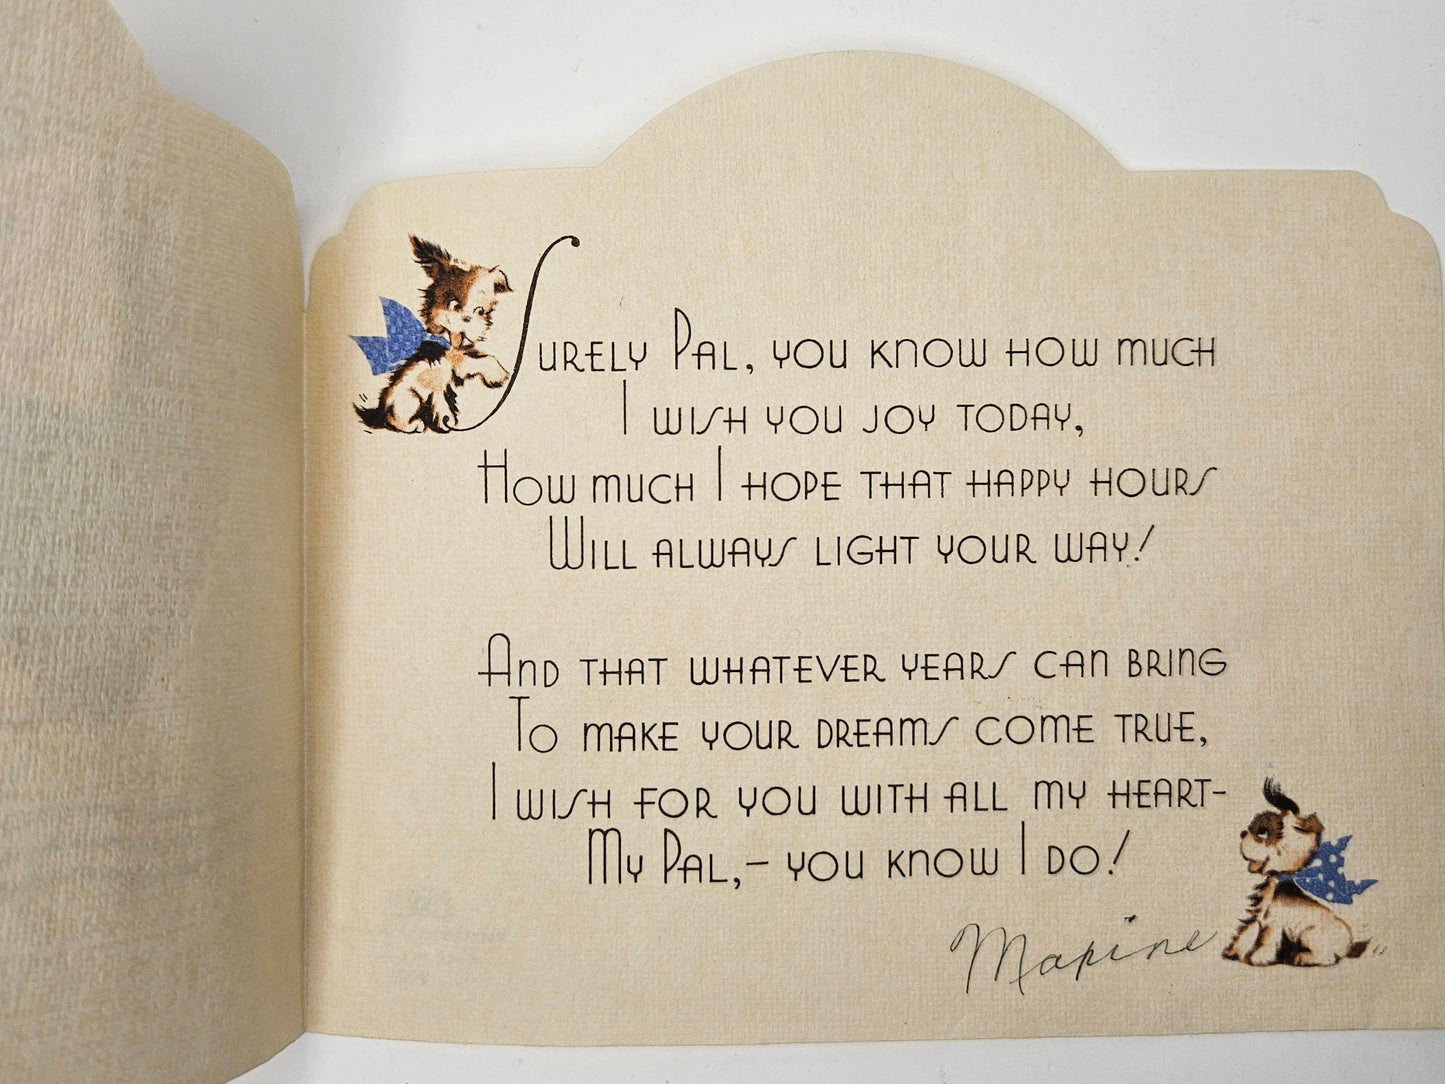 Surely Pal, you know how much
I wish you joy today,
How much I hope that happy hours
Will always light your way!
And that whatever years can bring
To make your dreams come true,
I wish for you with all my heart-
My Pal,- you know I do!
Maxine